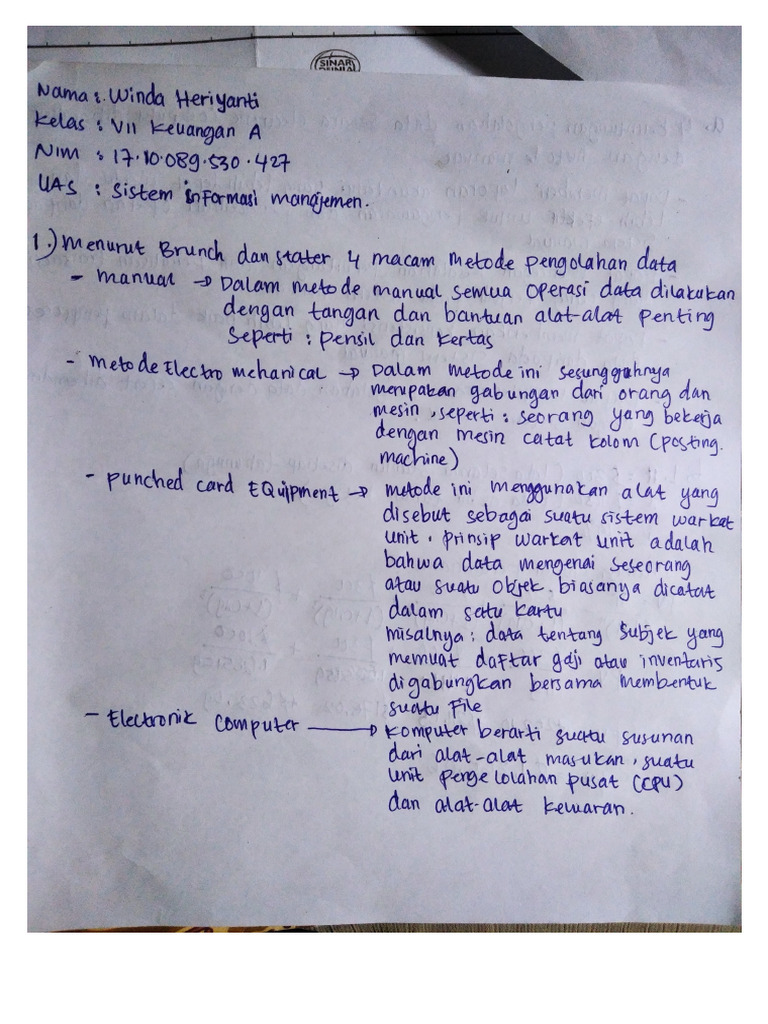 SINAR
Nama : Winda Heriyanti
Kelas : VII Keuangan A
NIM : 17.10.089.530.427
UAS : Sistem informasi manajemen.
1.) Menurut Brunch dan stater 4 macam metode pengolahan data
- manual → Dalam metode manual semua operasi data dilakukan
dengan tangan dan bantuan alat-alat penting
seperti : pensil dan kertas
- metode Electro mehanical → Dalam metode ini sesungguhnya
merupakan gabungan dari orang dan
mesin, seperti : seorang yang bekerja
dengan mesin catat kolom (posting.
machine)
- punched card EQuipment → metode ini menggunakan alat yang
disebut sebagai suatu sistem warkat
unit. prinsip warkat unit adalah
bahwa data mengenai seseorang
atau suatu objek. biasanya dicatat
dalam satu kartu
misalnya : data tentang subjek yang
memuat daftar gaji atau inventaris
digabungkan bersama membentuk
suatu File
- Electronik computer → komputer berarti suatu susunan
dari alat-alat masukan, suatu
unit pergelolahan pusat (CPU)
dan alat-alat keluaran.